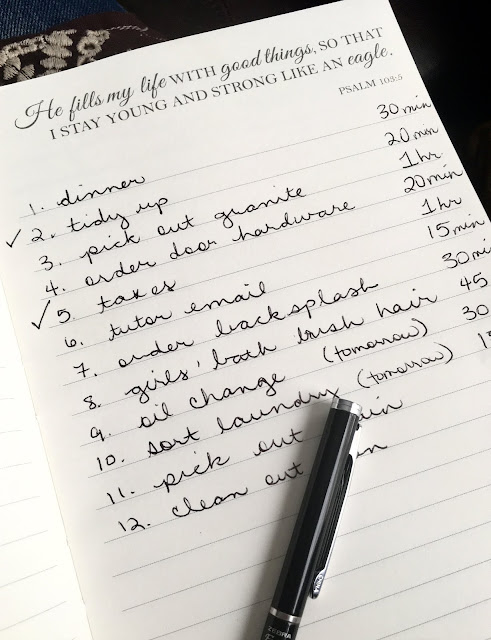 He fills my life WITH good things, SO THAT
I STAY YOUNG AND STRONG LIKE AN eagle.
PSALM 103:5
1. dinner 30 min
✓ 2. tidy up 20 min
3. pick out granite 1 hr
4. order door hardware 20 min
✓ 5. taxes 1 hr
6. tutor email 15 min
7. order backsplash 30 min
8. girls' bath brush hair 45
9. oil change (tomorrow) 30
10. sort laundry (tomorrow)
11. pick out
12. clean out
ZEBRA